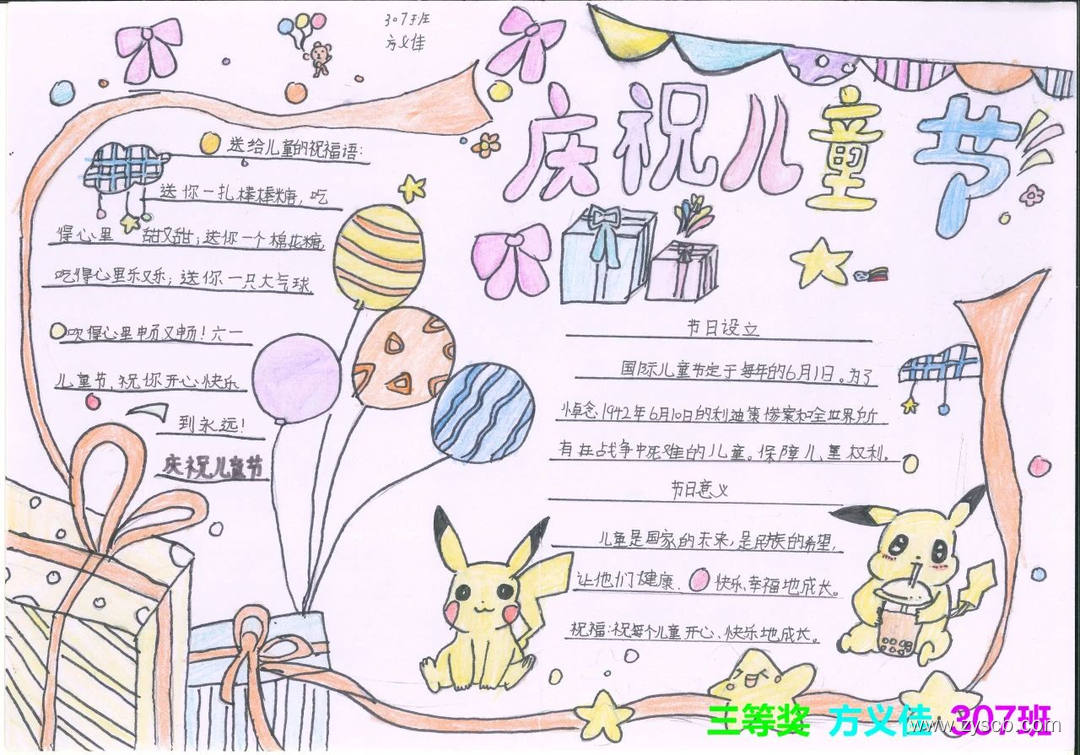 307班
方义佳
庆祝儿童节
送给儿童的祝福语:
送你一扎棒棒糖，吃
得心里 甜又甜；送你一个棉花糖，
吃得心里乐又乐；送你一只大气球
吹得心里畅又畅！六一
儿童节，祝你开心快乐
到永远！
庆祝儿童节
节日设立
国际儿童节定于每年的6月1日。为了
悼念1942年6月10日的利迪策惨案和全世界所
有在战争中死难的儿童。保障儿童权利。
节日意义
儿童是国家的未来，是民族的希望，
让他们健康、快乐、幸福地成长。
祝福：祝每个儿童开心、快乐地成长。
三等奖 方义佳 307班
www.zyscp.com